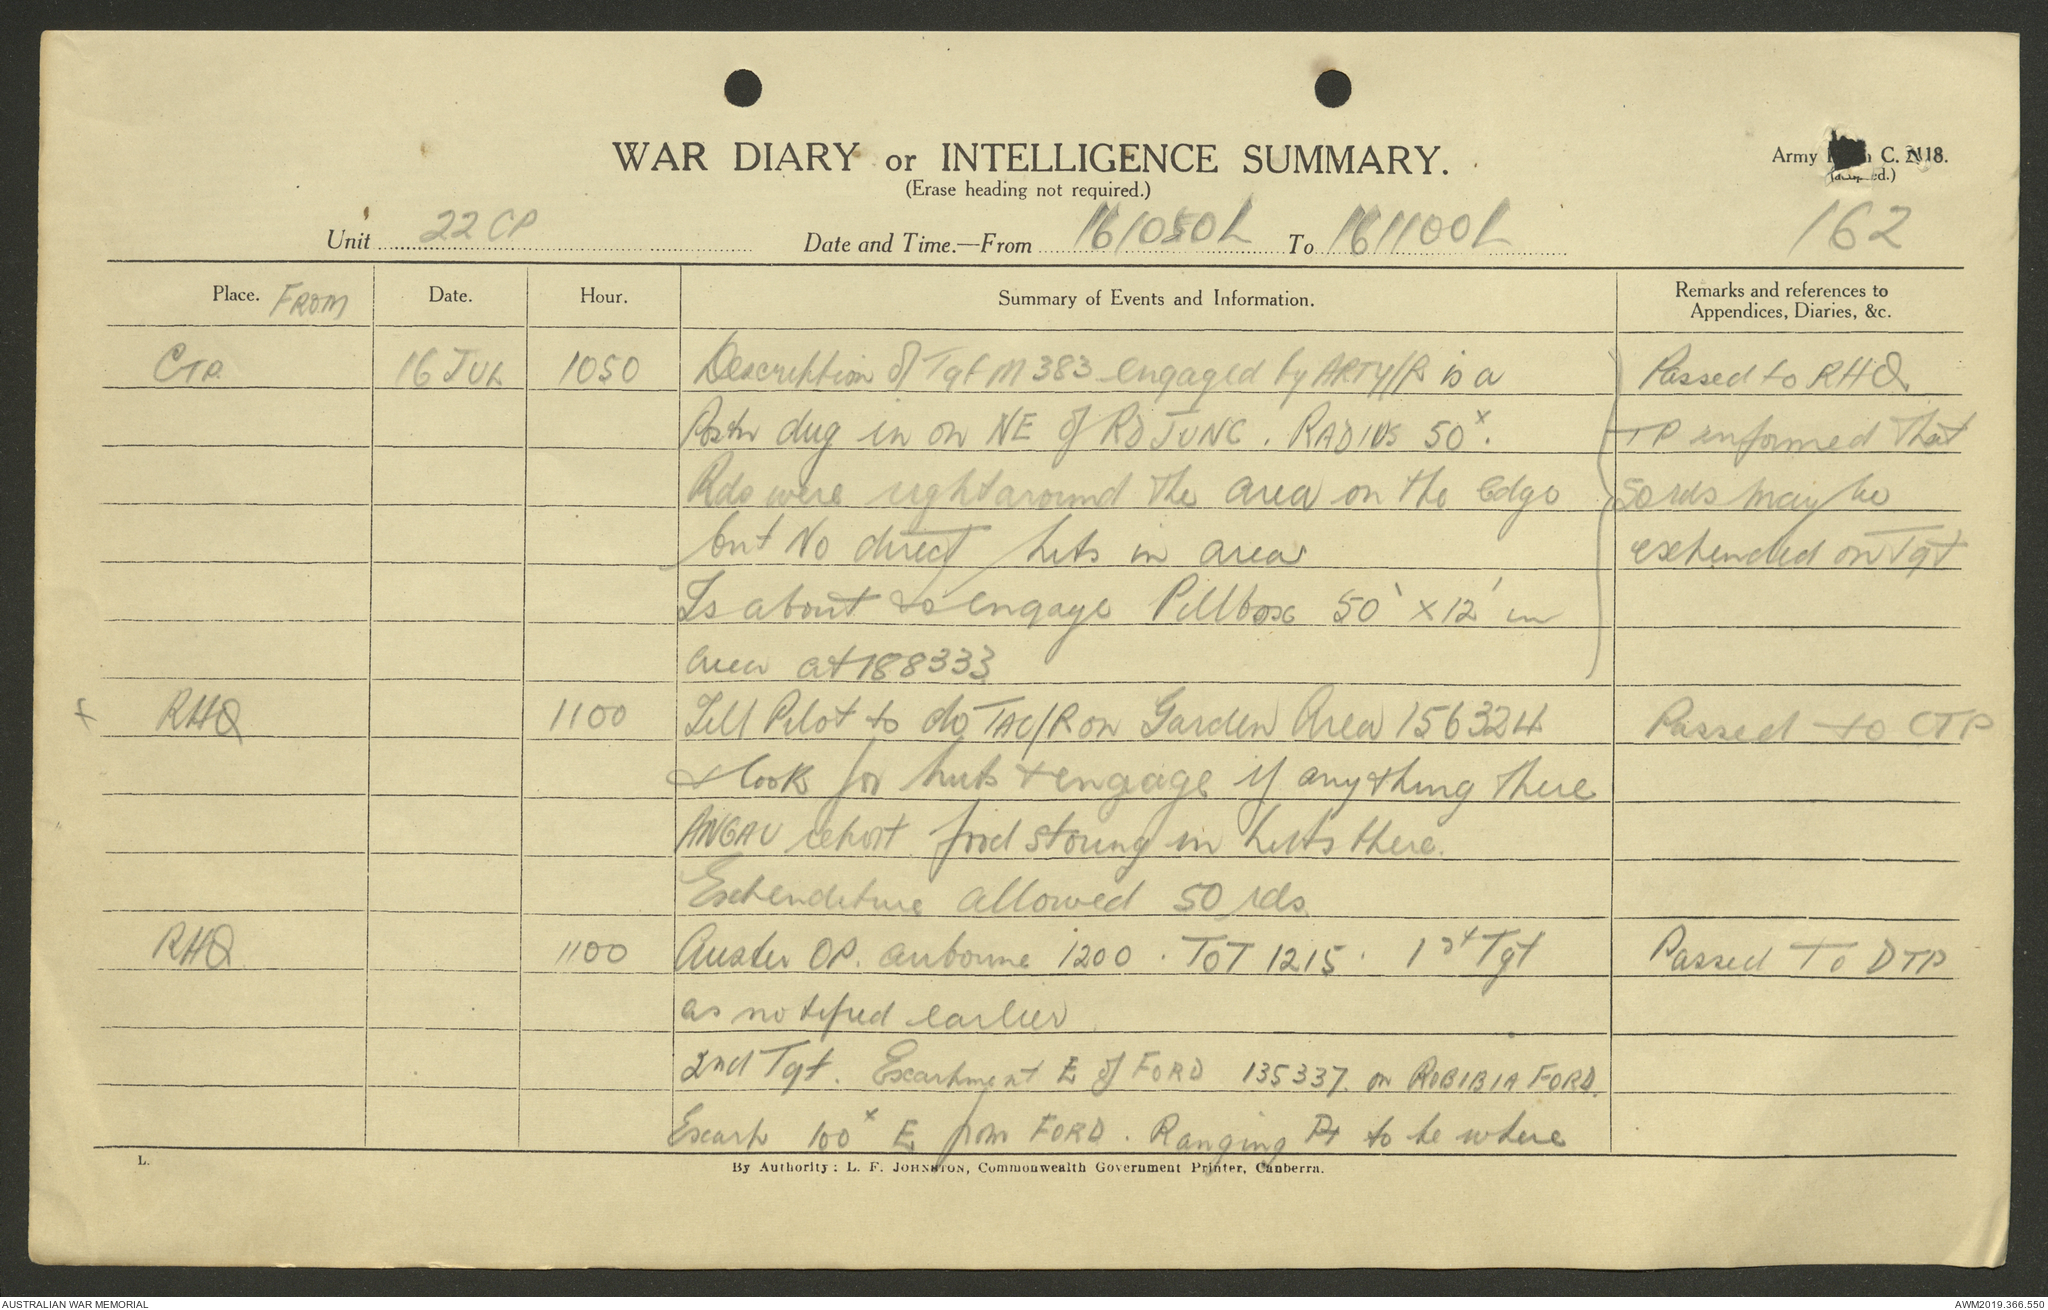 WAR DIARY or INTELLIGENCE SUMMARY.
(Erase heading not required.)
Army C. 2118.
162
Unit 22 CP
Date and Time.—From 161050L To 161100L
Place. FROM Date. Hour. Summary of Events and Information. Remarks and references to Appendices, Diaries, &c.
CTP. 16 JUL 1050 Description of Tgt M383 engaged by ARTY/R is a Passed to RHQ
Postn dug in on NE of RD JUNC. RADIUS 50x. TP informed that
Rds were right around the area on the edge 50 rds may be
but No direct hits in area expended on Tgt
Is about to engage Pillbox 50' x 12' in
area at 188333
RHQ 1100 Tell Pilot to do TAC/R on Garden Area 156324 Passed to CTP
& look for huts & engage if anything there
ANGAU report food storing in huts there.
Expenditure allowed 50 rds
RHQ 1100 Auster OP. airborne 1200. TOT 1215. 1st Tgt Passed To DTP
as notified earlier
2nd Tgt. Escarpment E of FORD 135337. on ROBIBIA FORD.
Escarp 100x E from FORD. Ranging Pt to be where
L.
By Authority: L. F. JOHNSTON, Commonwealth Government Printer, Canberra.
AUSTRALIAN WAR MEMORIAL
AWM2019.366.550